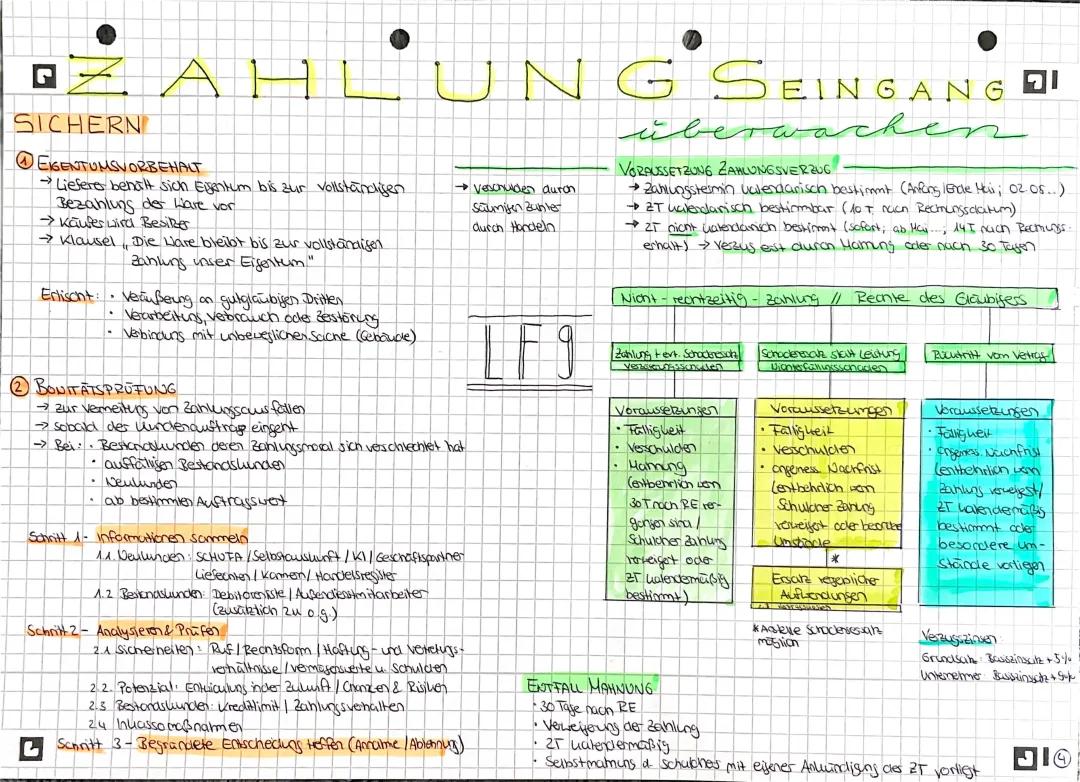 ZAHLUNGSEINGANG
SICHERN
überwachen
① EIGENTUMSVORBEHALT
→ Lieferer behält sich Eigentum bis zur vollständigen
Bezahlung der Ware vor
→ Käufer wird Besitzer
→ Klausel „Die Ware bleibt bis zur vollständigen
Zahlung unser Eigentum."
Erlischt: • Veräußerung an gutgläubigen Dritten
• Verarbeitung, Verbrauch oder Zerstörung
• Verbindung mit unbeweglichen Sache (Gebäude)
② BONITÄTSPRÜFUNG
→ zur Vermeidung von Zahlungsausfällen
→ sobald der Kundenauftrag eingeht
→ Bei: • Bestandskunden deren Zahlungsmoral sich verschlechtert hat
• auffälligen Bestandskunden
• Neukunden
• ab bestimmten Auftragswert
Schritt 1 - Informationen sammeln
1.1. Neukunden: SCHUFA / Selbstauskunft / KI / Geschäftspartner
Lieferanten / Kammern / Handelsregister
1.2 Bestandskunden: Debitorenliste / Außendienstmitarbeiter
(zusätzlich zu o.g.)
Schritt 2 - Analysieren & Prüfen
2.1 Sicherheiten: Ruf / Rechtsform / Haftung- und Vertretungs-
verhältnisse / Vermögenswerte u. Schulden
2.2. Potenzial: Entwicklung in der Zukunft / Chancen & Risiken
2.3 Bestandskunden: Kreditlimit / Zahlungsverhalten
2.4 Inkassomaßnahmen
Schritt 3 - Begründete Entscheidung treffen (Annahme / Ablehnung)
→ Verschulden durch
säumigen Zahler
durch Handeln
LF9
VORAUSSETZUNG ZAHLUNGSVERZUG
→ Zahlungstermin kalendarisch bestimmt (Anfang / Ende Mai; 02.05..)
→ ZT kalendarisch bestimmbar (10 T. nach Rechnungsdatum)
→ ZT nicht kalendarisch bestimmt (sofort; ab Mai...; 14T nach Rechnungs-
erhalt) → Verzug erst durch Mahnung oder nach 30 Tagen
Nicht - rechtzeitig - Zahlung // Rechte des Gläubigers
Zahlung + evt. Schadensersatz
Verzögerungsschaden
Voraussetzungen
• Fälligkeit
• Verschulden
• Mahnung
(entbehrlich wenn
30T nach RE ver-
gangen sind /
Schuldner Zahlung
verweigert oder
ZT kalendermäßig
bestimmt)
Schadensersatz statt Leistung
Nichterfüllungsschaden
Voraussetzungen
• Fälligkeit
• Verschulden
• angemess. Nachfrist
(entbehrlich wenn
Schuldner Zahlung
verweigert oder besondere
Umstände
*
Ersatz vergeblicher
Aufwendungen
* Anstelle Schadensersatz
möglich
Rücktritt vom Vertrag
Voraussetzungen
• Fälligkeit
• angemess. Nachfrist
(entbehrlich wenn
Zahlung verweigert/
ZT kalendermäßig
bestimmt oder
besondere Um-
stände vorliegen
Verzugszinsen:
Grundsatz: Basiszinsatz + 5%
Unternehmer: Basiszinsatz + 9%
ENTFALL MAHNUNG
• 30 Tage nach RE
• Verweigerung der Zahlung
• ZT kalendermäßig
• Selbstmahnung d. Schuldners mit eigener Ankündigung des ZT vorliegt
④